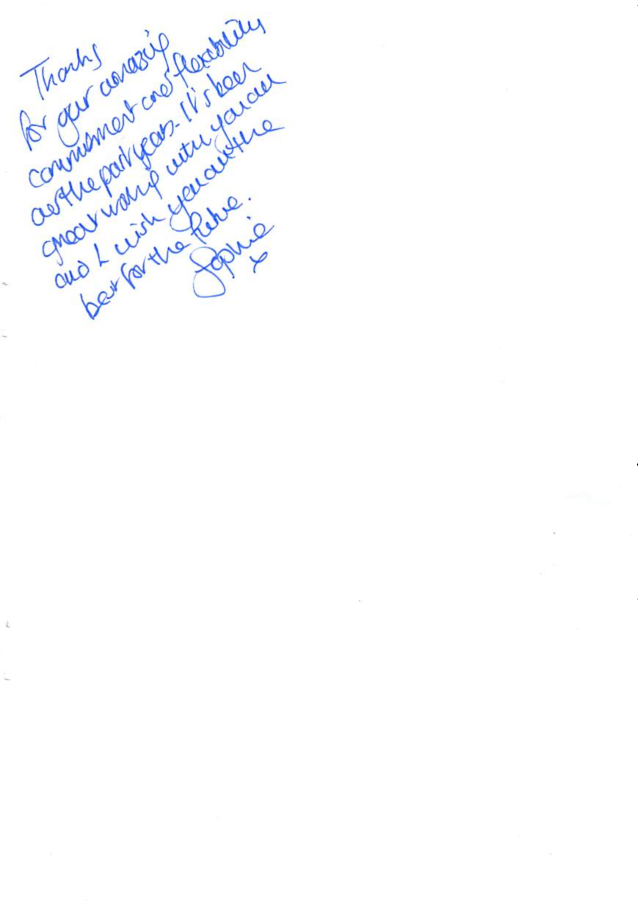 Thanks
for your amazing
commitment and flexibility
over the past years. It's been
great working with you all
and I wish you all the
best for the future.
Sophie
x